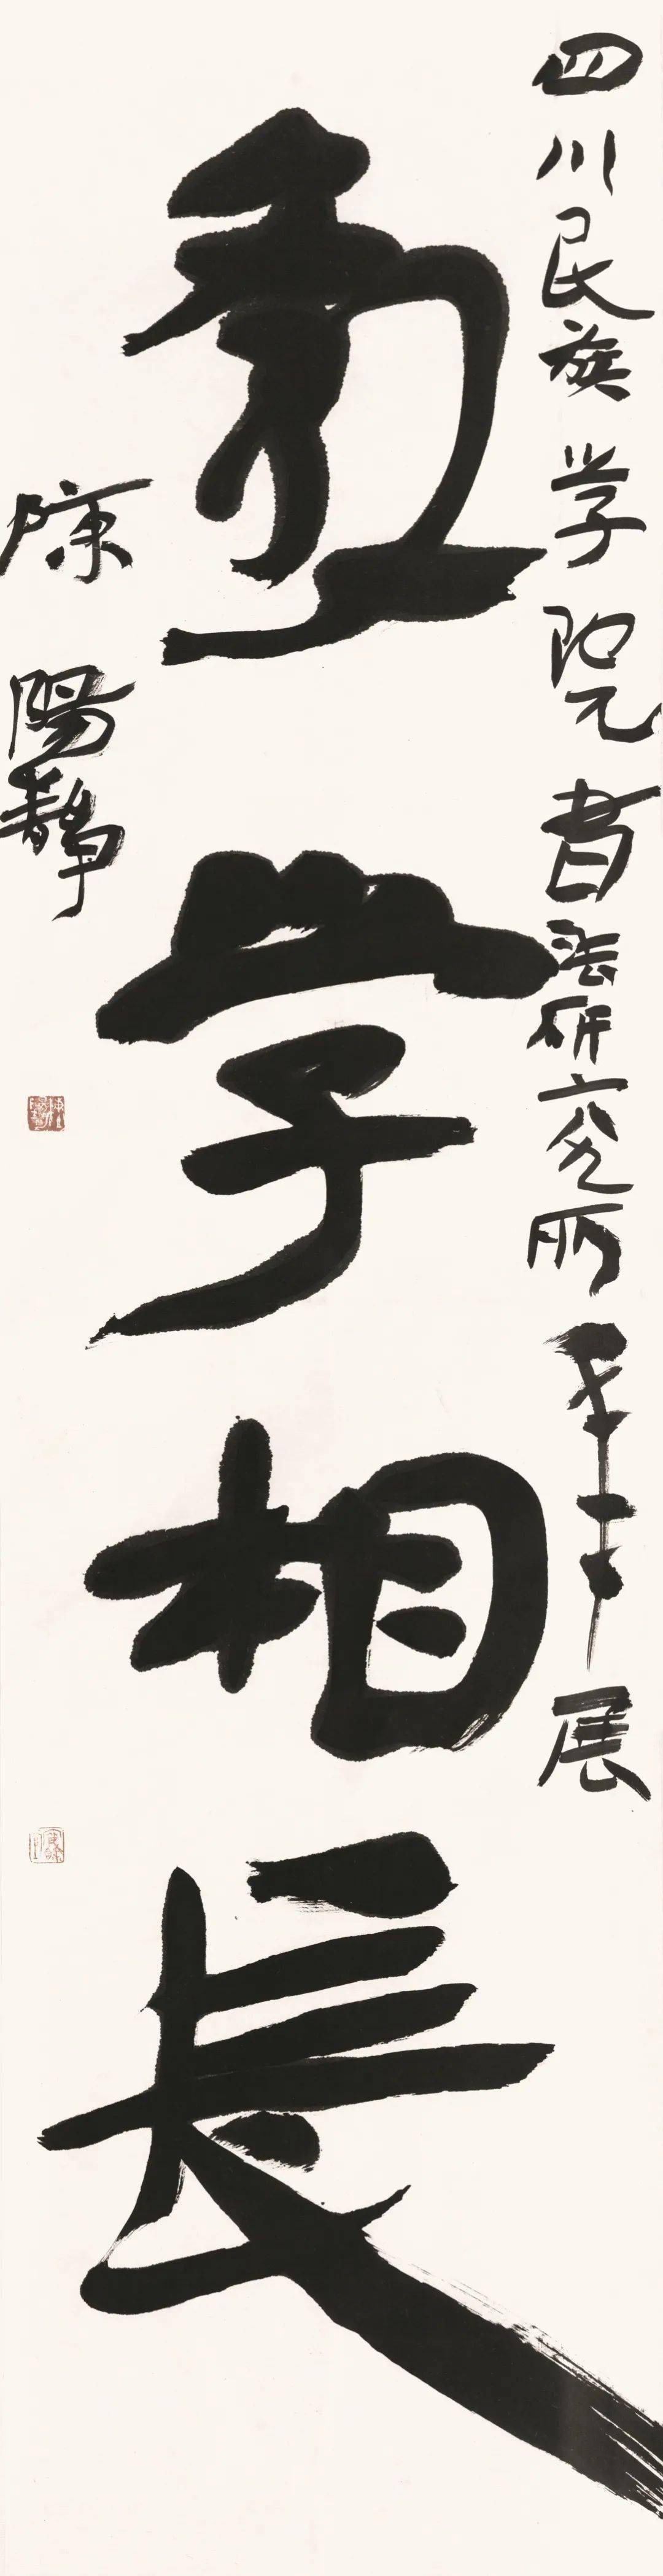 四川民族学院书法研究所年展
教学相长
陈阳静